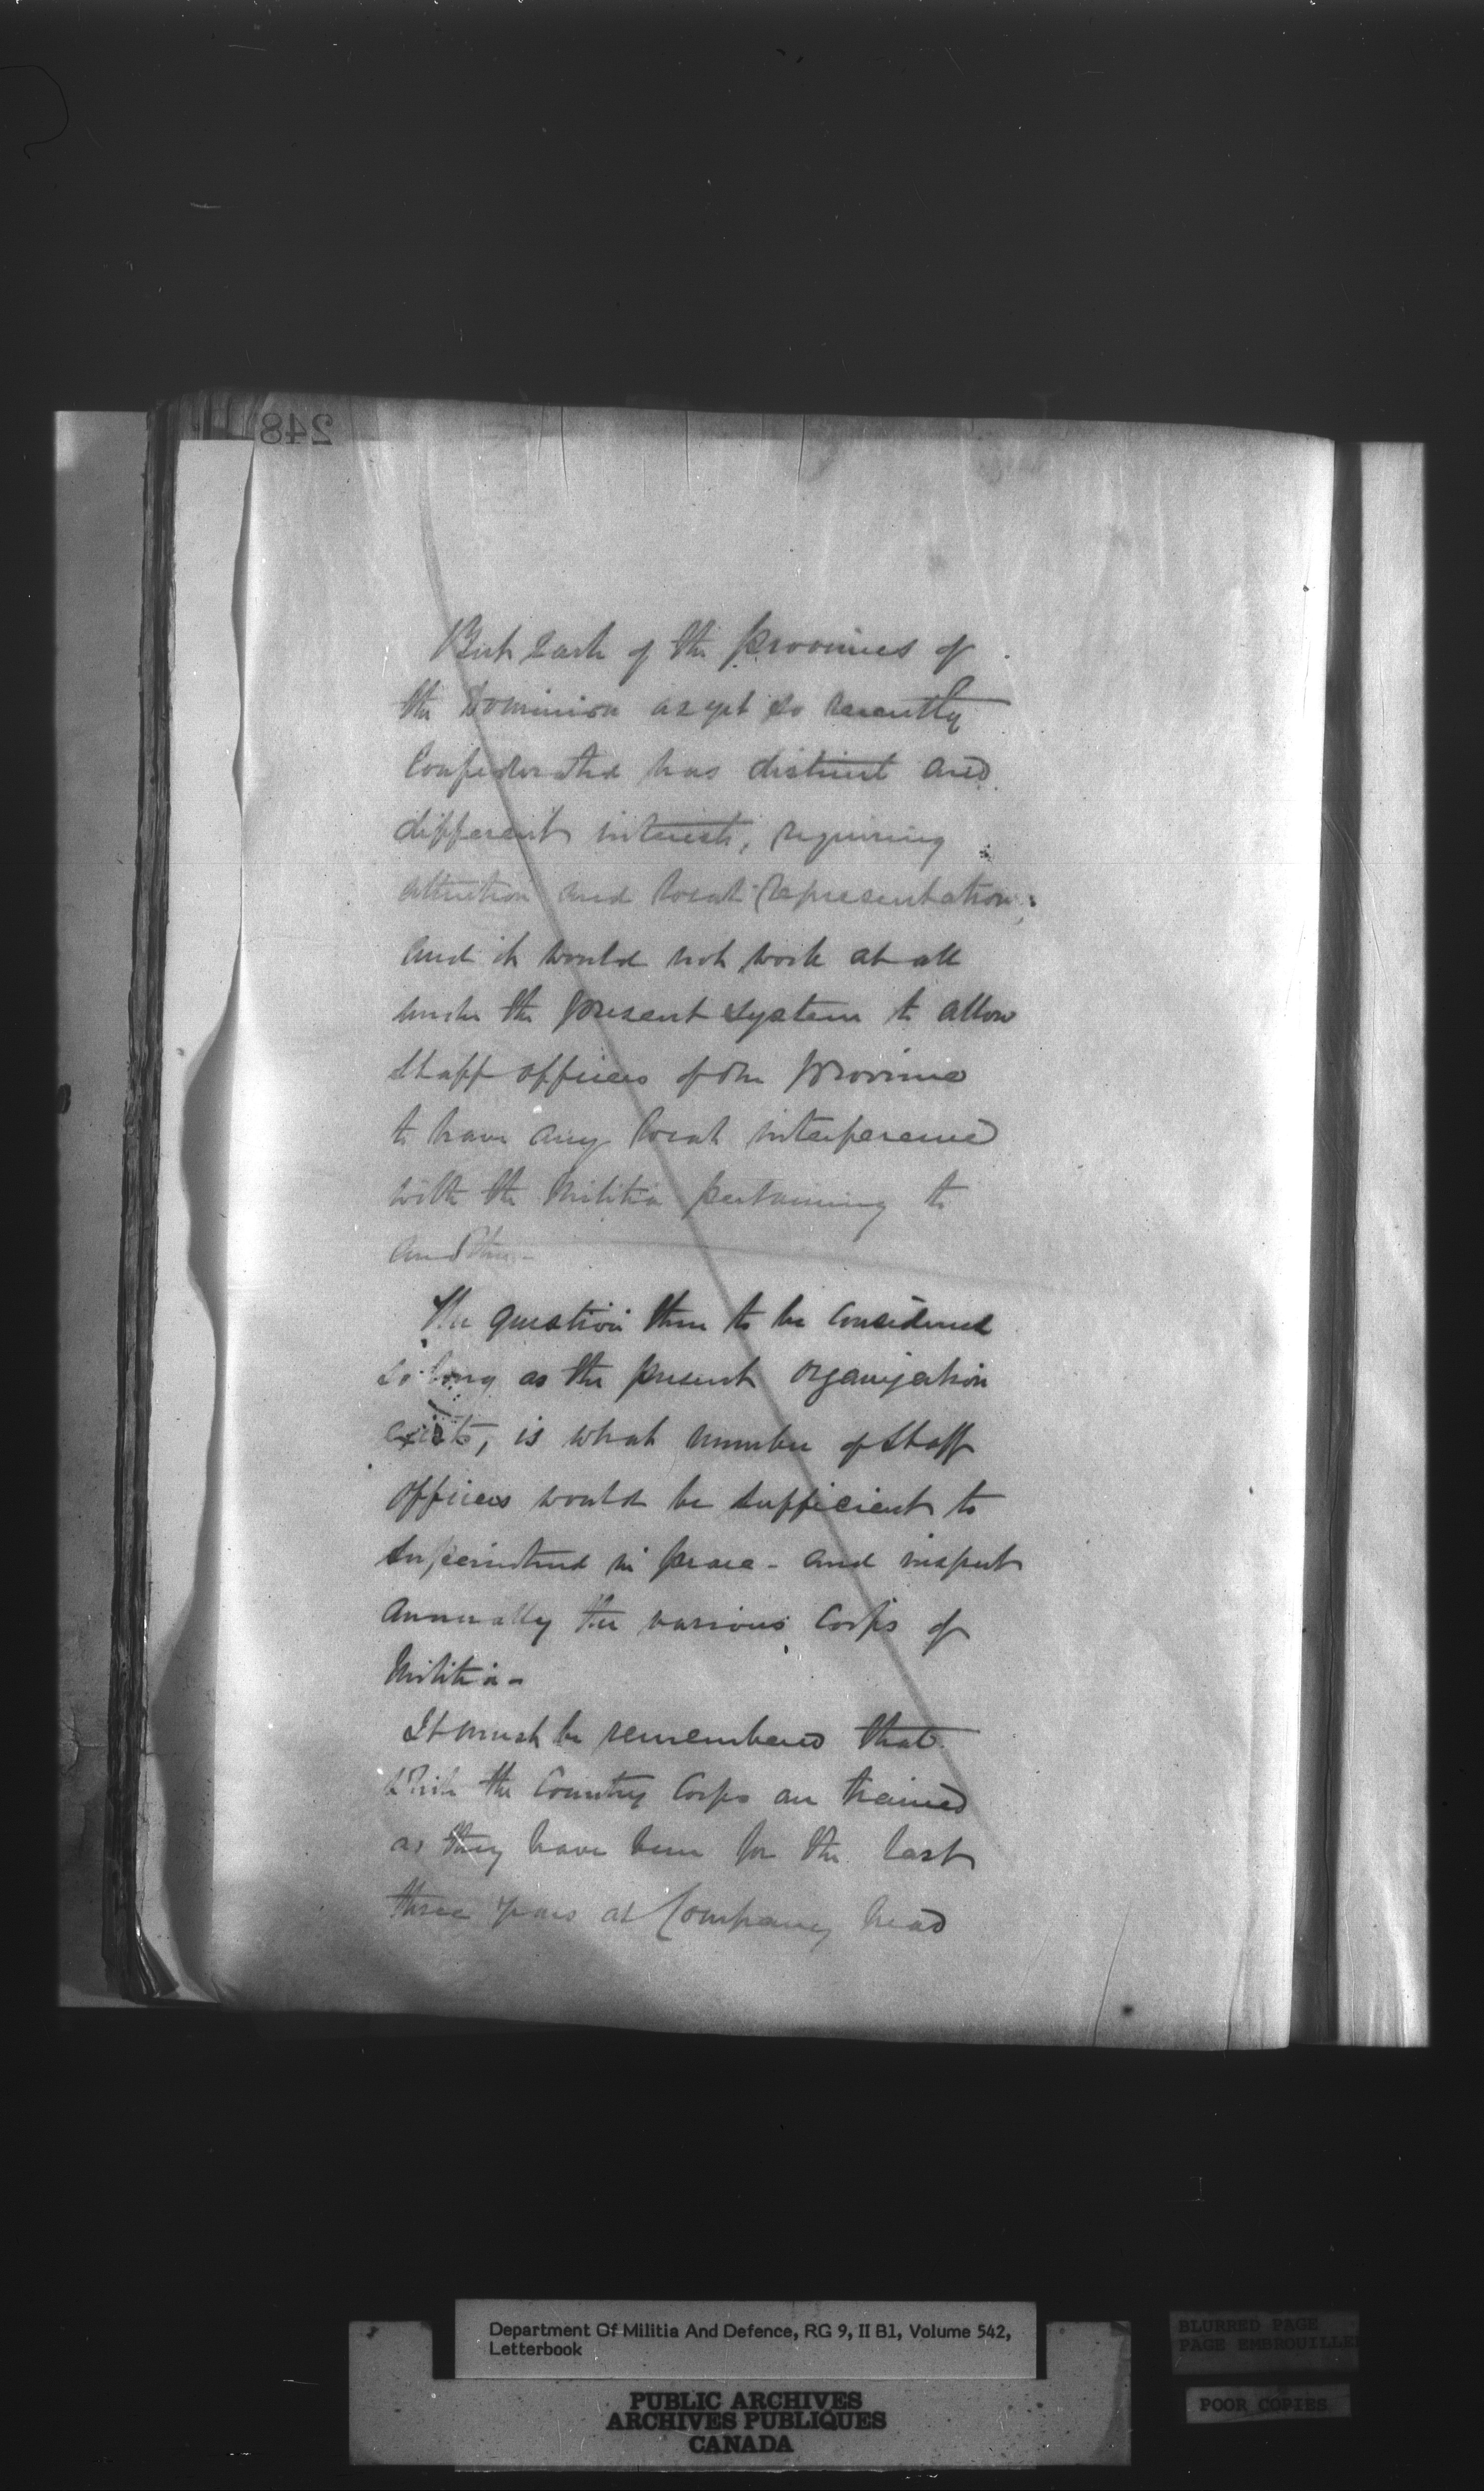 248
But each of the provinces of
the Dominion as yet so recently
Confederated has distinct and
different interests, requiring
attention and local representation;
and it would not work at all
under the present system to allow
Staff officers of one province
to have any local interference
with the Militia pertaining to
another -
The question then to be considered
so long as the present organization
exists, is what number of Staff
officers would be sufficient to
superintend in peace - and inspect
annually the various Corps of
Militia -
It must be remembered that
while the Country Corps are trained
as they have been for the last
three years at Company head
Department Of Militia And Defence, RG 9, II B1, Volume 542,
Letterbook
PUBLIC ARCHIVES
ARCHIVES PUBLIQUES
CANADA
BLURRED PAGE
PAGE EMBROUILLE
POOR COPIES